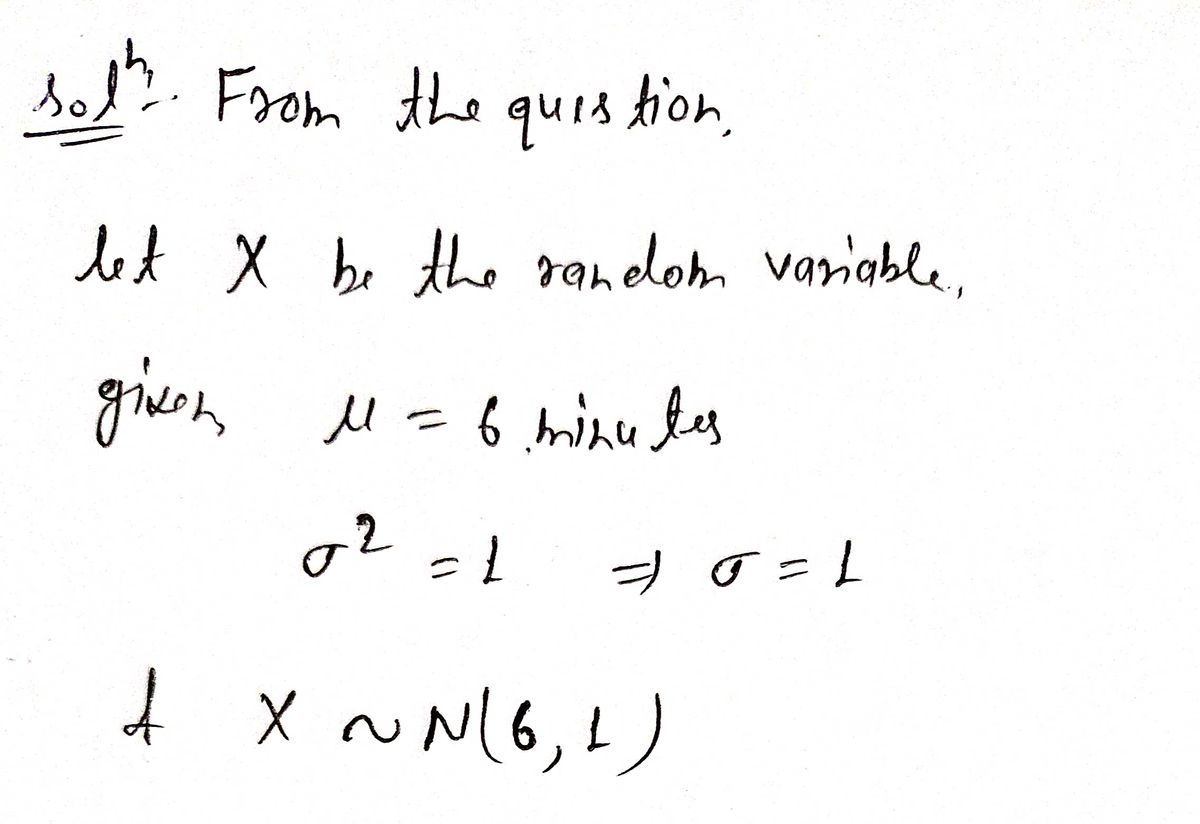 solⁿ. From the quistion,
let X be the random variable,
given μ = 6 minutes
σ² = 1 ⇒ σ = 1
& X ~ N(6, 1)